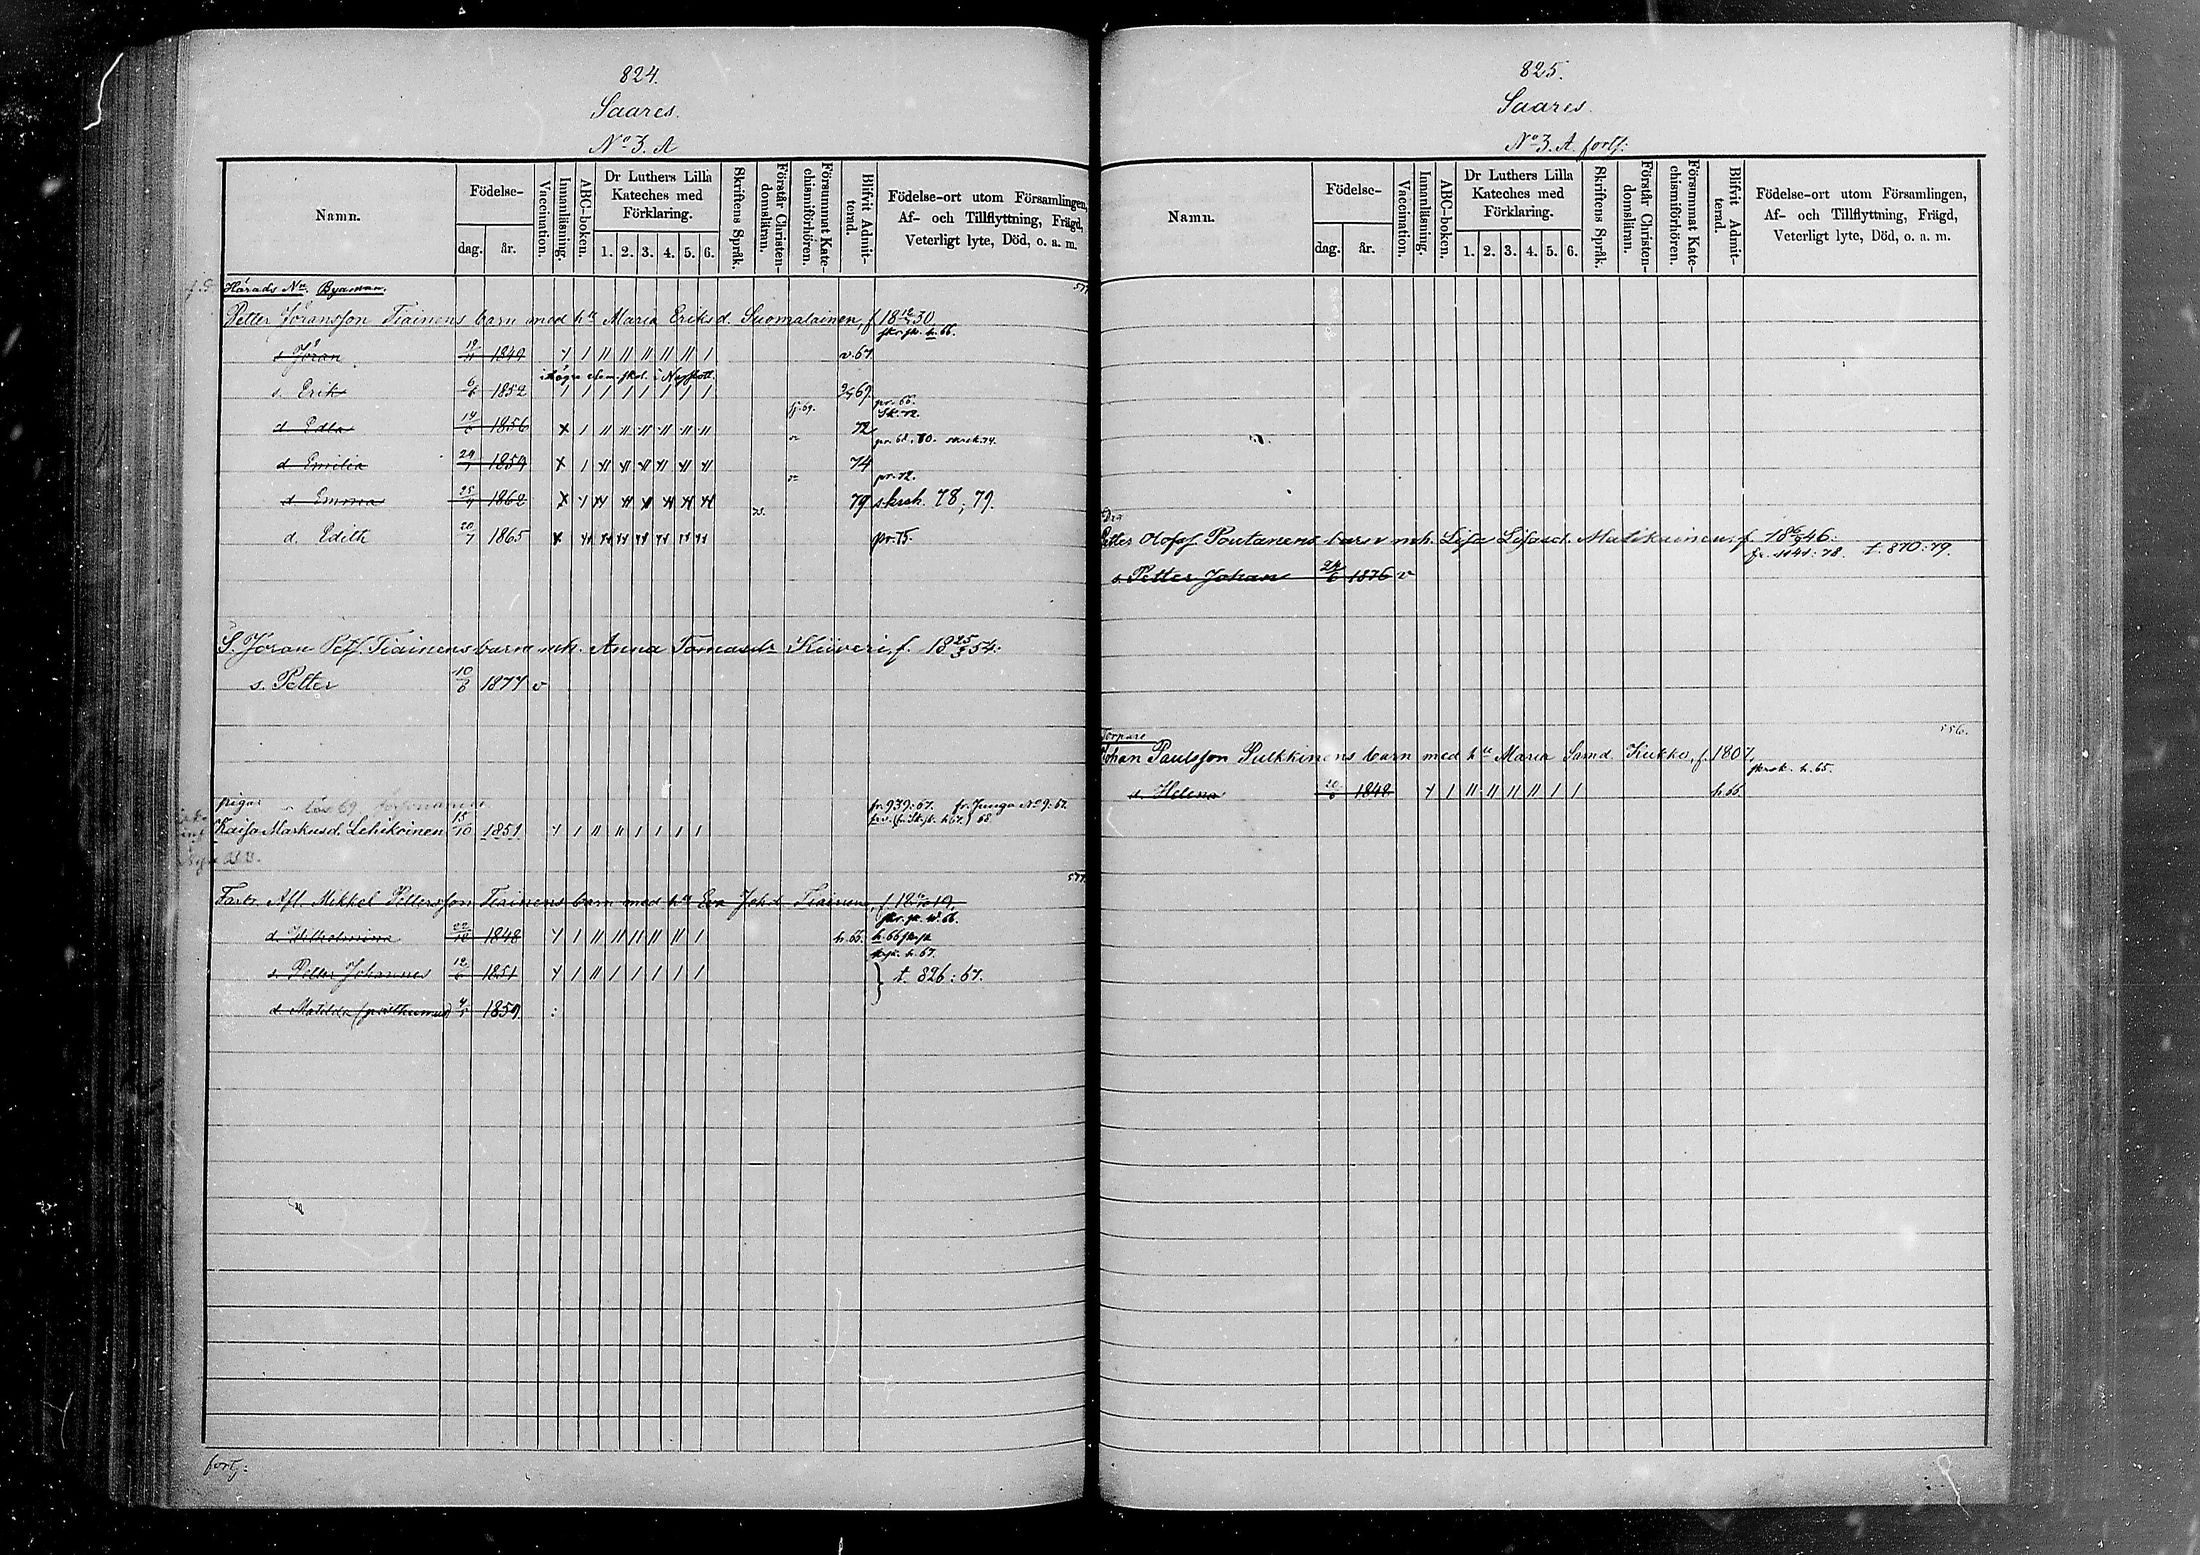 824.
Saares.
No 3. A
Namn.
Födelse-
dag.
år.
Vaccination.
Innanläsning.
ABC-boken.
Dr Luthers Lilla
Kateches med
Förklaring.
1. 2. 3. 4. 5. 6.
Skriftens Språk.
Förstår Christen-
domsläran.
Försummat Kate-
chismiförhören.
Blifvit Admit-
terad.
Födelse-ort utom Församlingen,
Af- och Tillflyttning, Frägd,
Veterligt lyte, Död, o. a. m.
Härads Nn. Byaman.
Petter Jöransson Tiainens barn med hu Maria Eriksd. Suomalainen, f 18 30
s. Jöran 19/11 1849 v. 67
s. Erik 6/6 1852 69.
pr. 66.
d. Edla 14/6 1856 72
pr. 68, 70. skrek. 74.
d. Emilia 1859 74
pr. 72.
d. Emma 1862 79 skrch. 78; 79.
d. Edith 20/7 1865 pr. 75.
S. Jöran Pett. Tiainens barn mh. Anna Tomasdr Kiiveri, f. 18 25/3 54.
s. Petter 10/6 1877 v
pigor
fr. 939: 67. fr. Junga No 9: 67.
Kaisa Markusd. Lehikoinen 15/10 1851
Farbr. Afl. Mikkel Pettersson Tiainens barn med hu Eva Johd Tiainen, f. 18 19
d. Wilhelmina 1848 h. 66.
s. Petter Johannes 12/6 1851 t. 826: 67.
d. Matilda (posthumus) 4/5 1859
fortz:
825.
Saares.
No 3. A. fortz:
Namn.
Födelse-
dag.
år.
Vaccination.
Innanläsning.
ABC-boken.
Dr Luthers Lilla
Kateches med
Förklaring.
1. 2. 3. 4. 5. 6.
Skriftens Språk.
Förstår Christen-
domsläran.
Försummat Kate-
chismiförhören.
Blifvit Admit-
terad.
Födelse-ort utom Församlingen,
Af- och Tillflyttning, Frägd,
Veterligt lyte, Död, o. a. m.
Petter Olofs. Poutanens barn mh. Lisa Matikainen, f. 18 46.
fr. 1041: 78. t. 870: 79.
s. Petter Johan 24/6 1876 v
556.
Torpare
Johan Paulsson Pulkkinens barn med hu Maria Samd. Kukko, f. 1807.
skrsk. h. 65.
d. Helena 1848. h. 66.